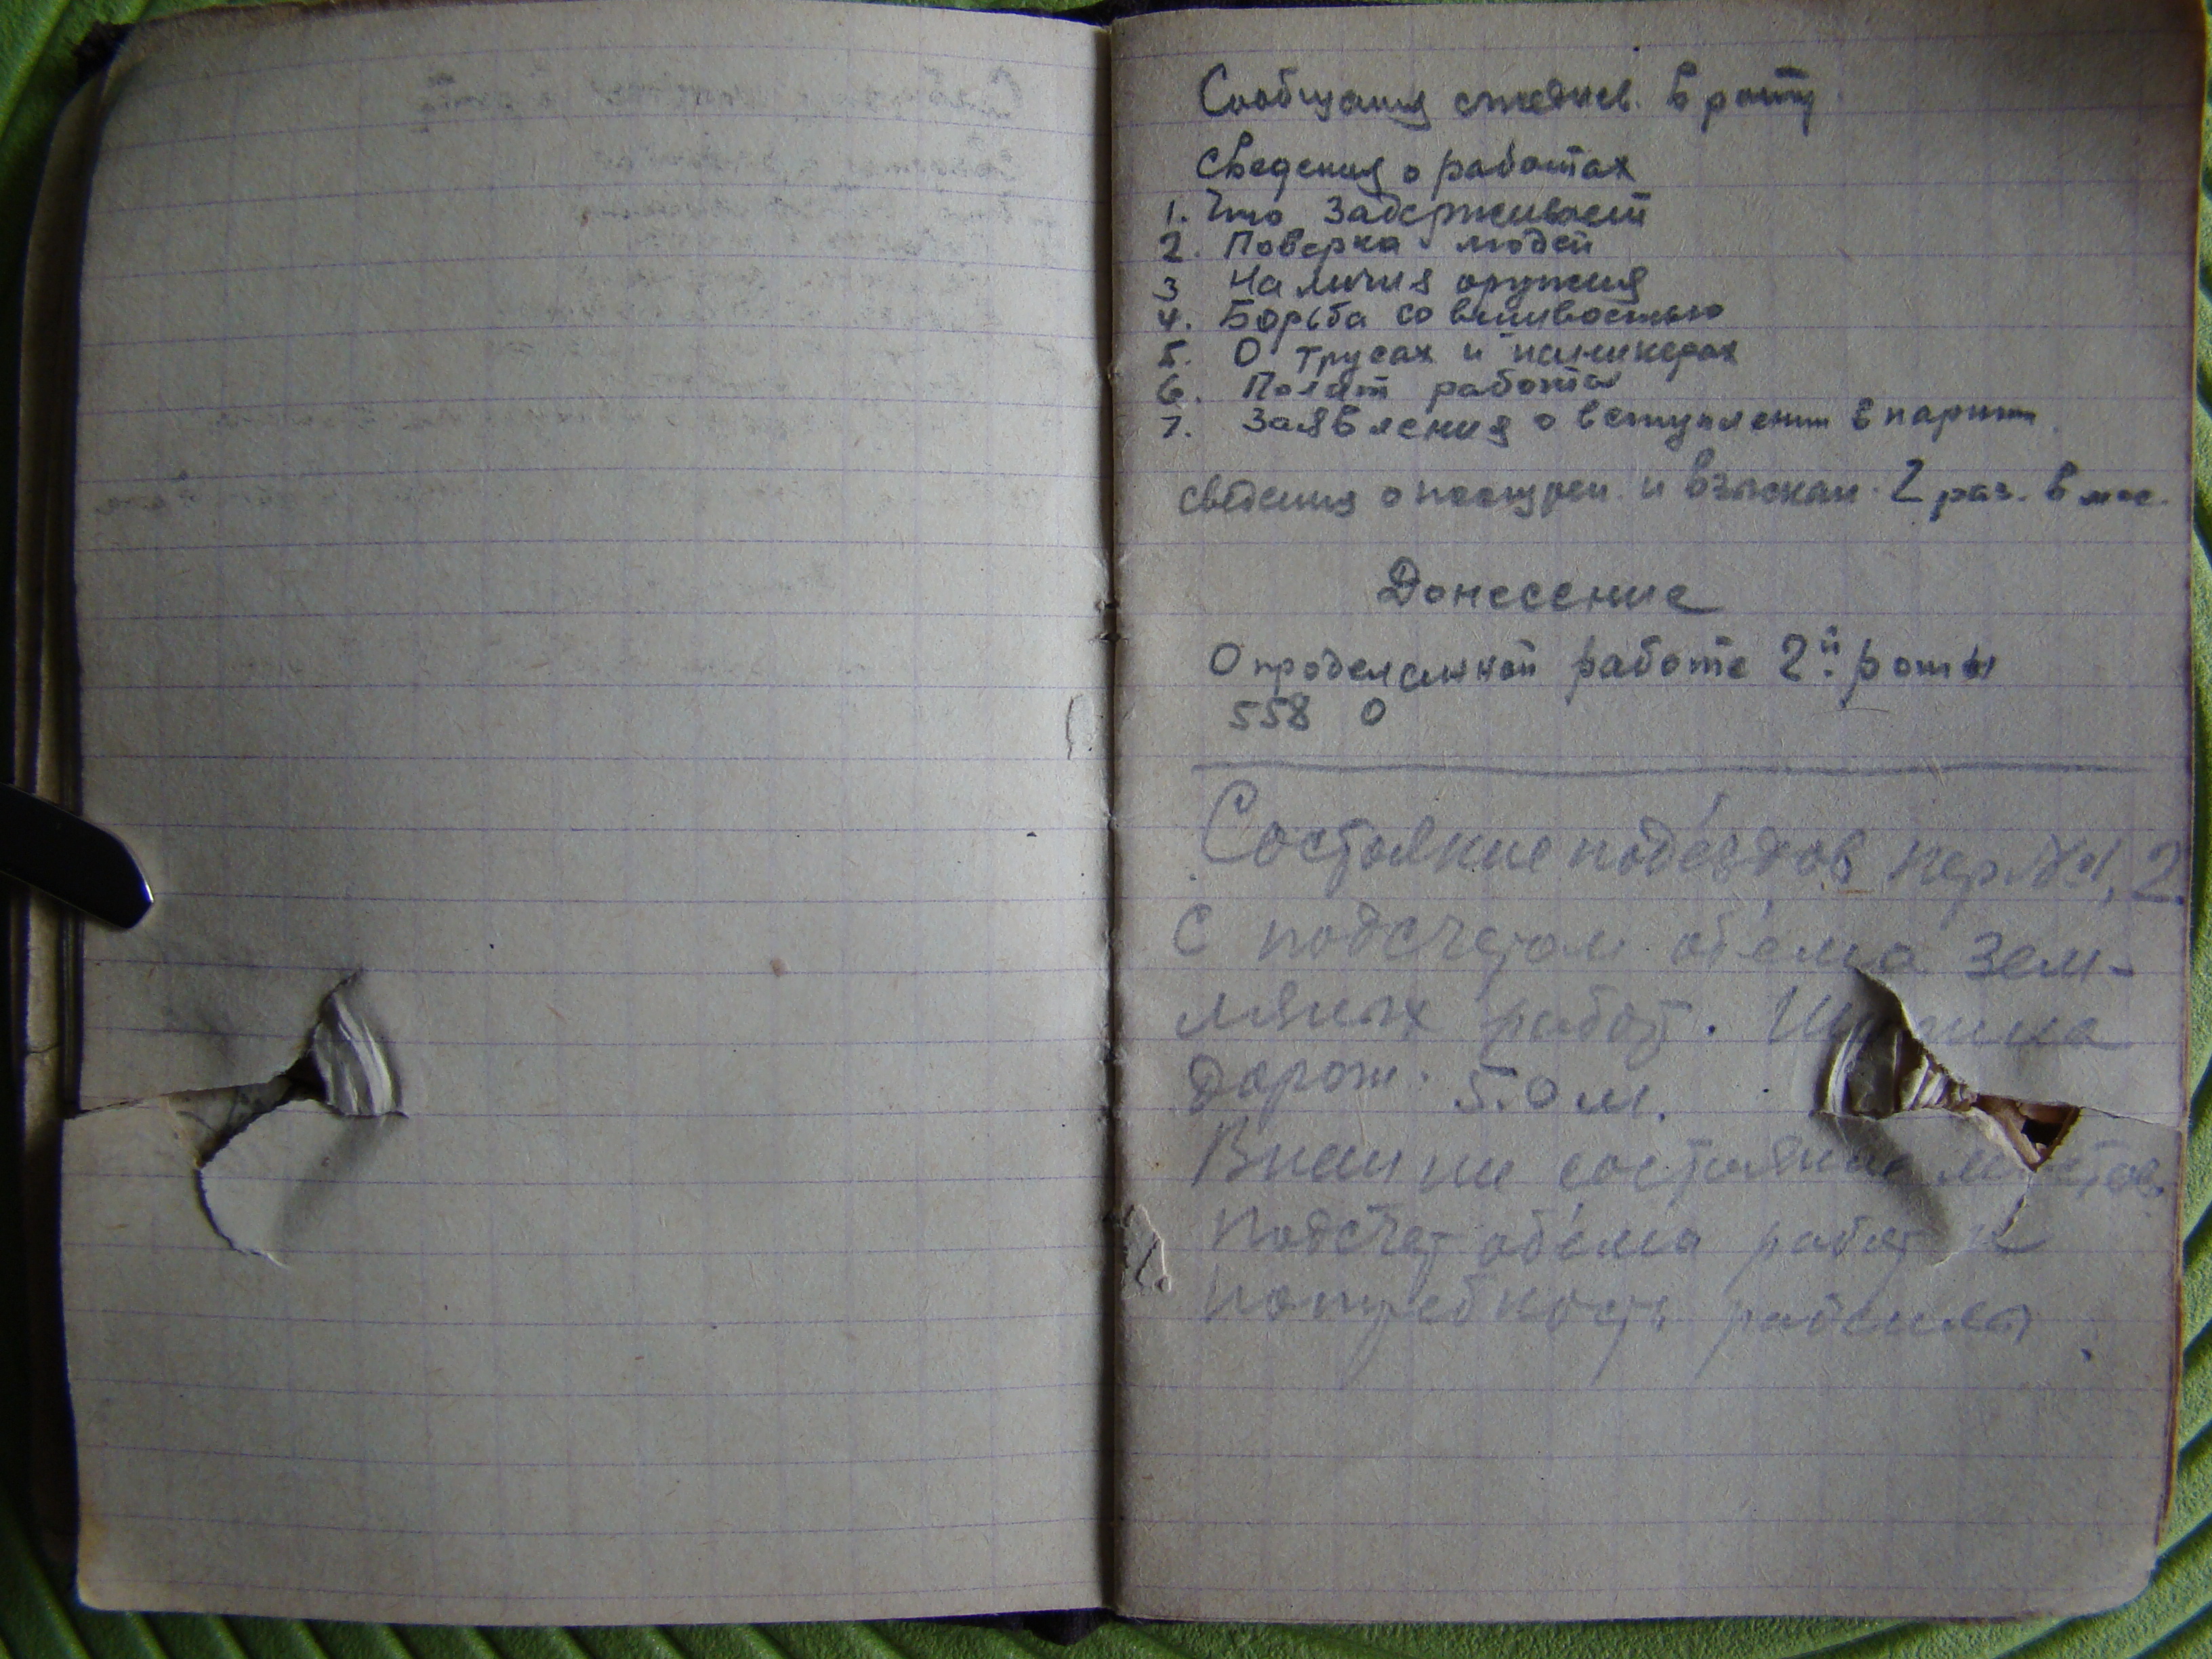 Сообщения ежеднев. в роту
Сведения о работах
1. Что задерживает
2. Поверка людей
3 Наличия оружия
4. Борьба со вшивостью
5. О трусах и паникерах
6. Полит работа
7. Заявления о вступлении в партию.
сведения о поощрен. и взыскан. 2 раз. в мес.
Донесение
О проделанной работе 2й роты
558 О
Состояние под'ездов пер. №1, 2.
С подсчетом об'ема зем-
ляных работ. Ширина
дорож. 5.0 м.
состояние мостов.
Подсчет об'ема работ и
потребность рабсилы